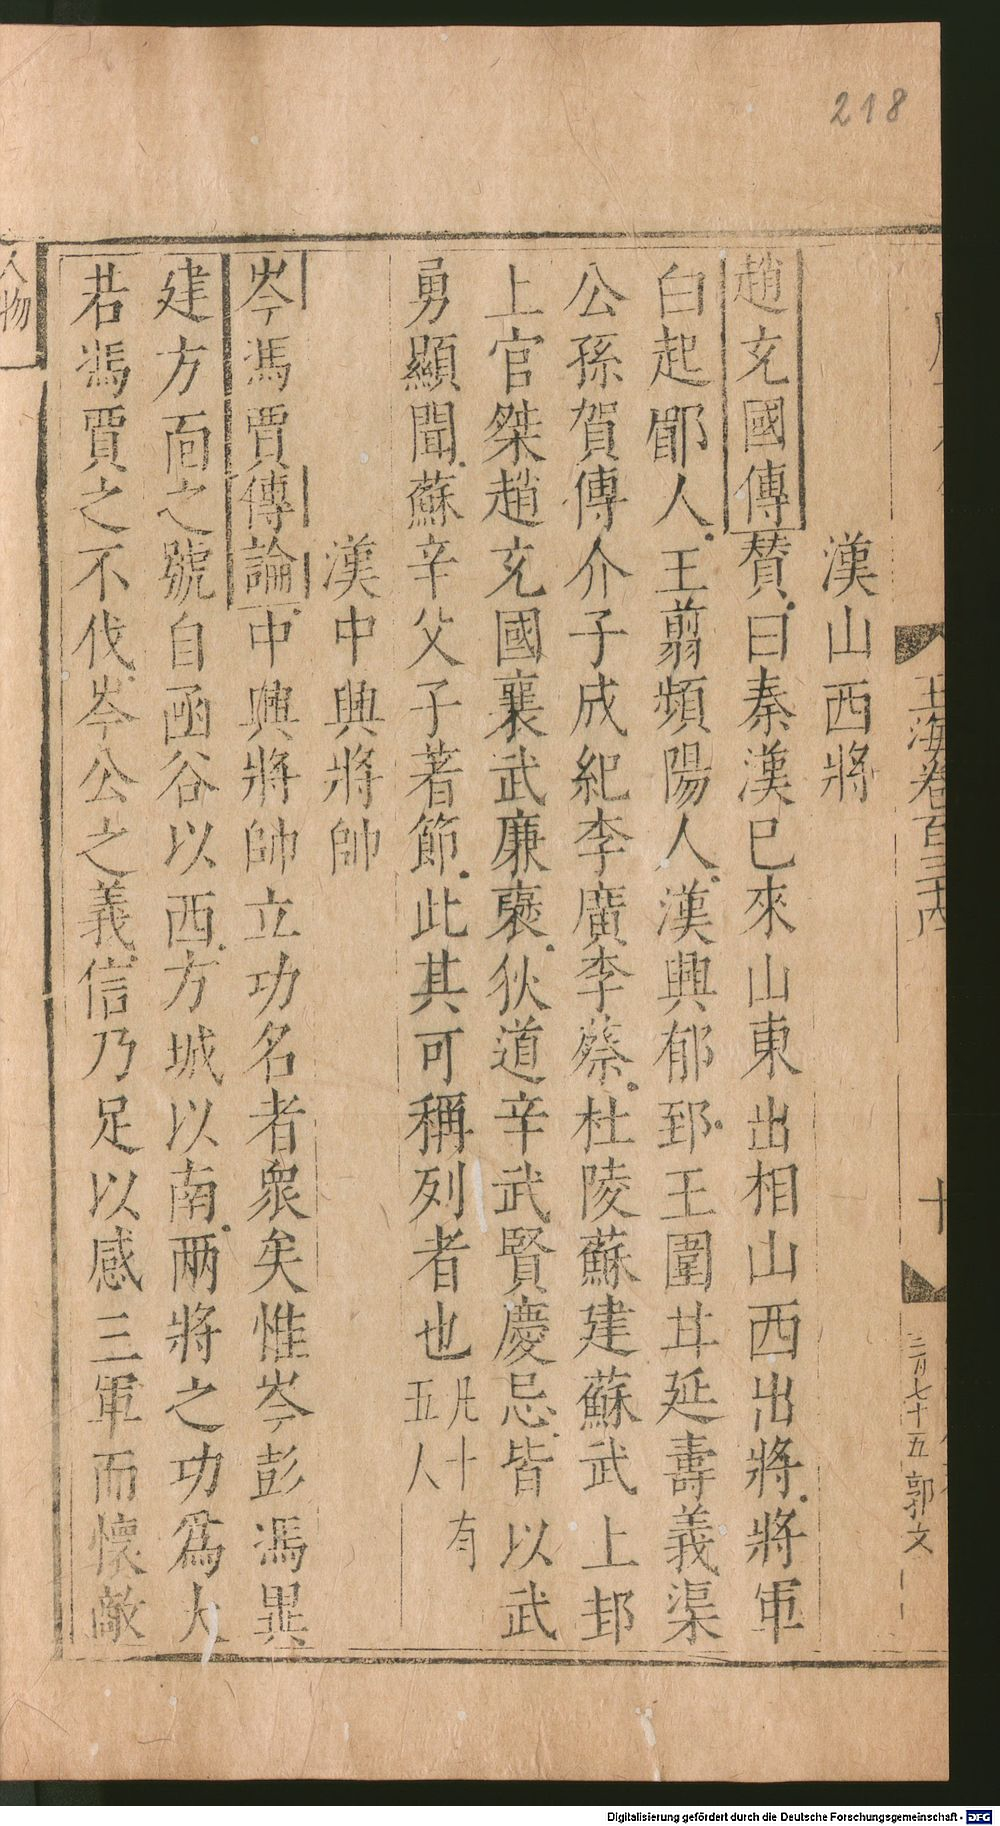 218
玉海卷百三十六
十
三月七十五 郭文
漢山西將
趙充國傳賛曰秦漢已來山東出相山西出將將軍
白起郿人王翦頻陽人漢興郁郅王圍甘延壽義渠
公孫賀傅介子成紀李廣李蔡杜陵蘇建蘇武上邽
上官桀趙充國襄武廉褒狄道辛武賢慶忌皆以武
勇顯聞蘇辛父子著節此其可稱列者也凡十有五人
漢中興將帥
岑馮賈傳論中興將帥立功名者衆矣惟岑彭馮異
建方面之號自函谷以西方城以南兩將之功爲大
若馮賈之不伐岑公之義信乃足以感三軍而懷敵
人物
Digitalisierung gefördert durch die Deutsche Forschungsgemeinschaft - DFG